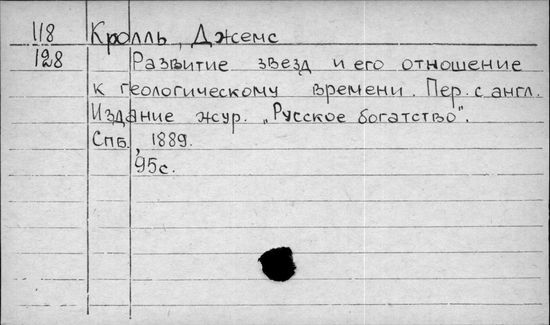 118 Кролль, Джемс
128 Развитие звезд и его отношение
к геологическому времени. Пер. с англ.
Издание жур. „Русское богатство".
Спб., 1889.
95с.